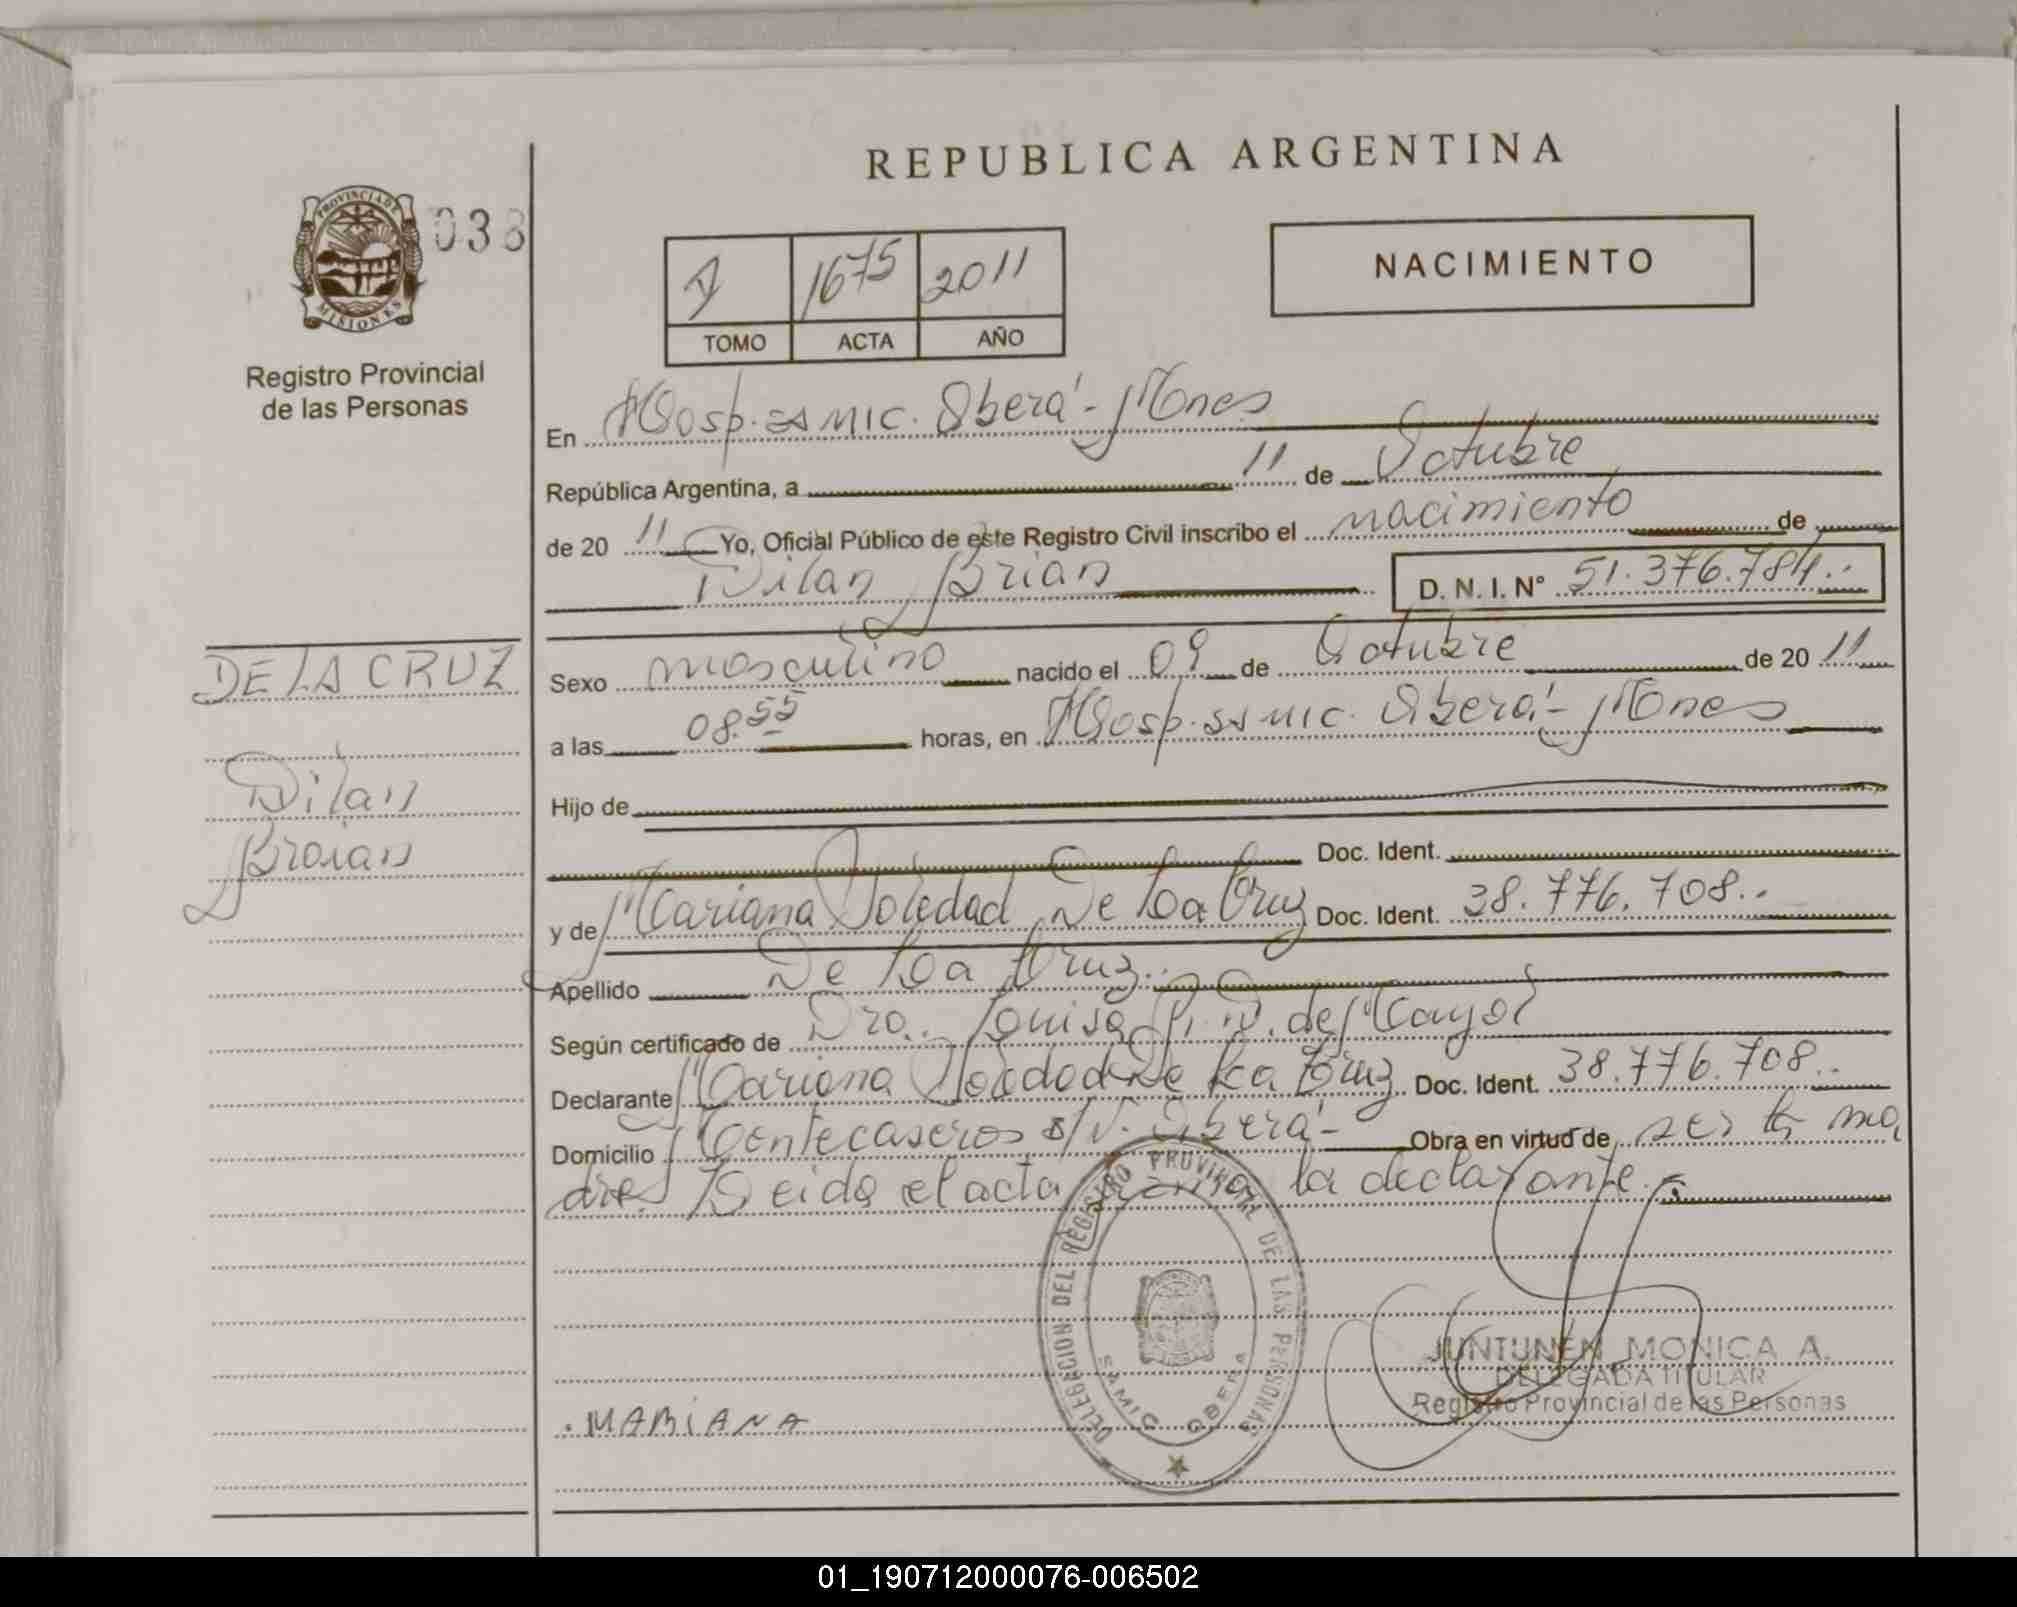 REPUBLICA ARGENTINA
PROVINCIA DE MISIONES
038
Registro Provincial
de las Personas
1675 2011
TOMO ACTA AÑO
NACIMIENTO
En Hosp. SAMIC. Oberá - Mnes
República Argentina, a 11 de Octubre
de 20 11 Yo, Oficial Público de este Registro Civil inscribo el nacimiento de
Dilan Brian D. N. I. N° 51.376.784..
DE LA CRUZ
Dilan
Brian
Sexo masculino nacido el 09 de Octubre de 20 11
a las 08.55 horas, en Hosp. SAMIC. Oberá - Mnes
Hijo de
Doc. Ident.
y de Mariana Soledad De La Cruz Doc. Ident. 38.776.708..
Apellido De La Cruz..
Según certificado de Dra. Louisa de Mayol
Declarante Mariana Soledad De La Cruz Doc. Ident. 38.776.708..
Domicilio Montecaseros s/N. Oberá - Obra en virtud de ser la ma
dre. Leida el acta firma la declarante.
DELEGACION DEL REGISTRO PROVINCIAL DE LAS PERSONAS
SAMIC OBERA
MARIANA
JUNTUNEN MONICA A.
DELEGADA TITULAR
Registro Provincial de las Personas
01_190712000076-006502